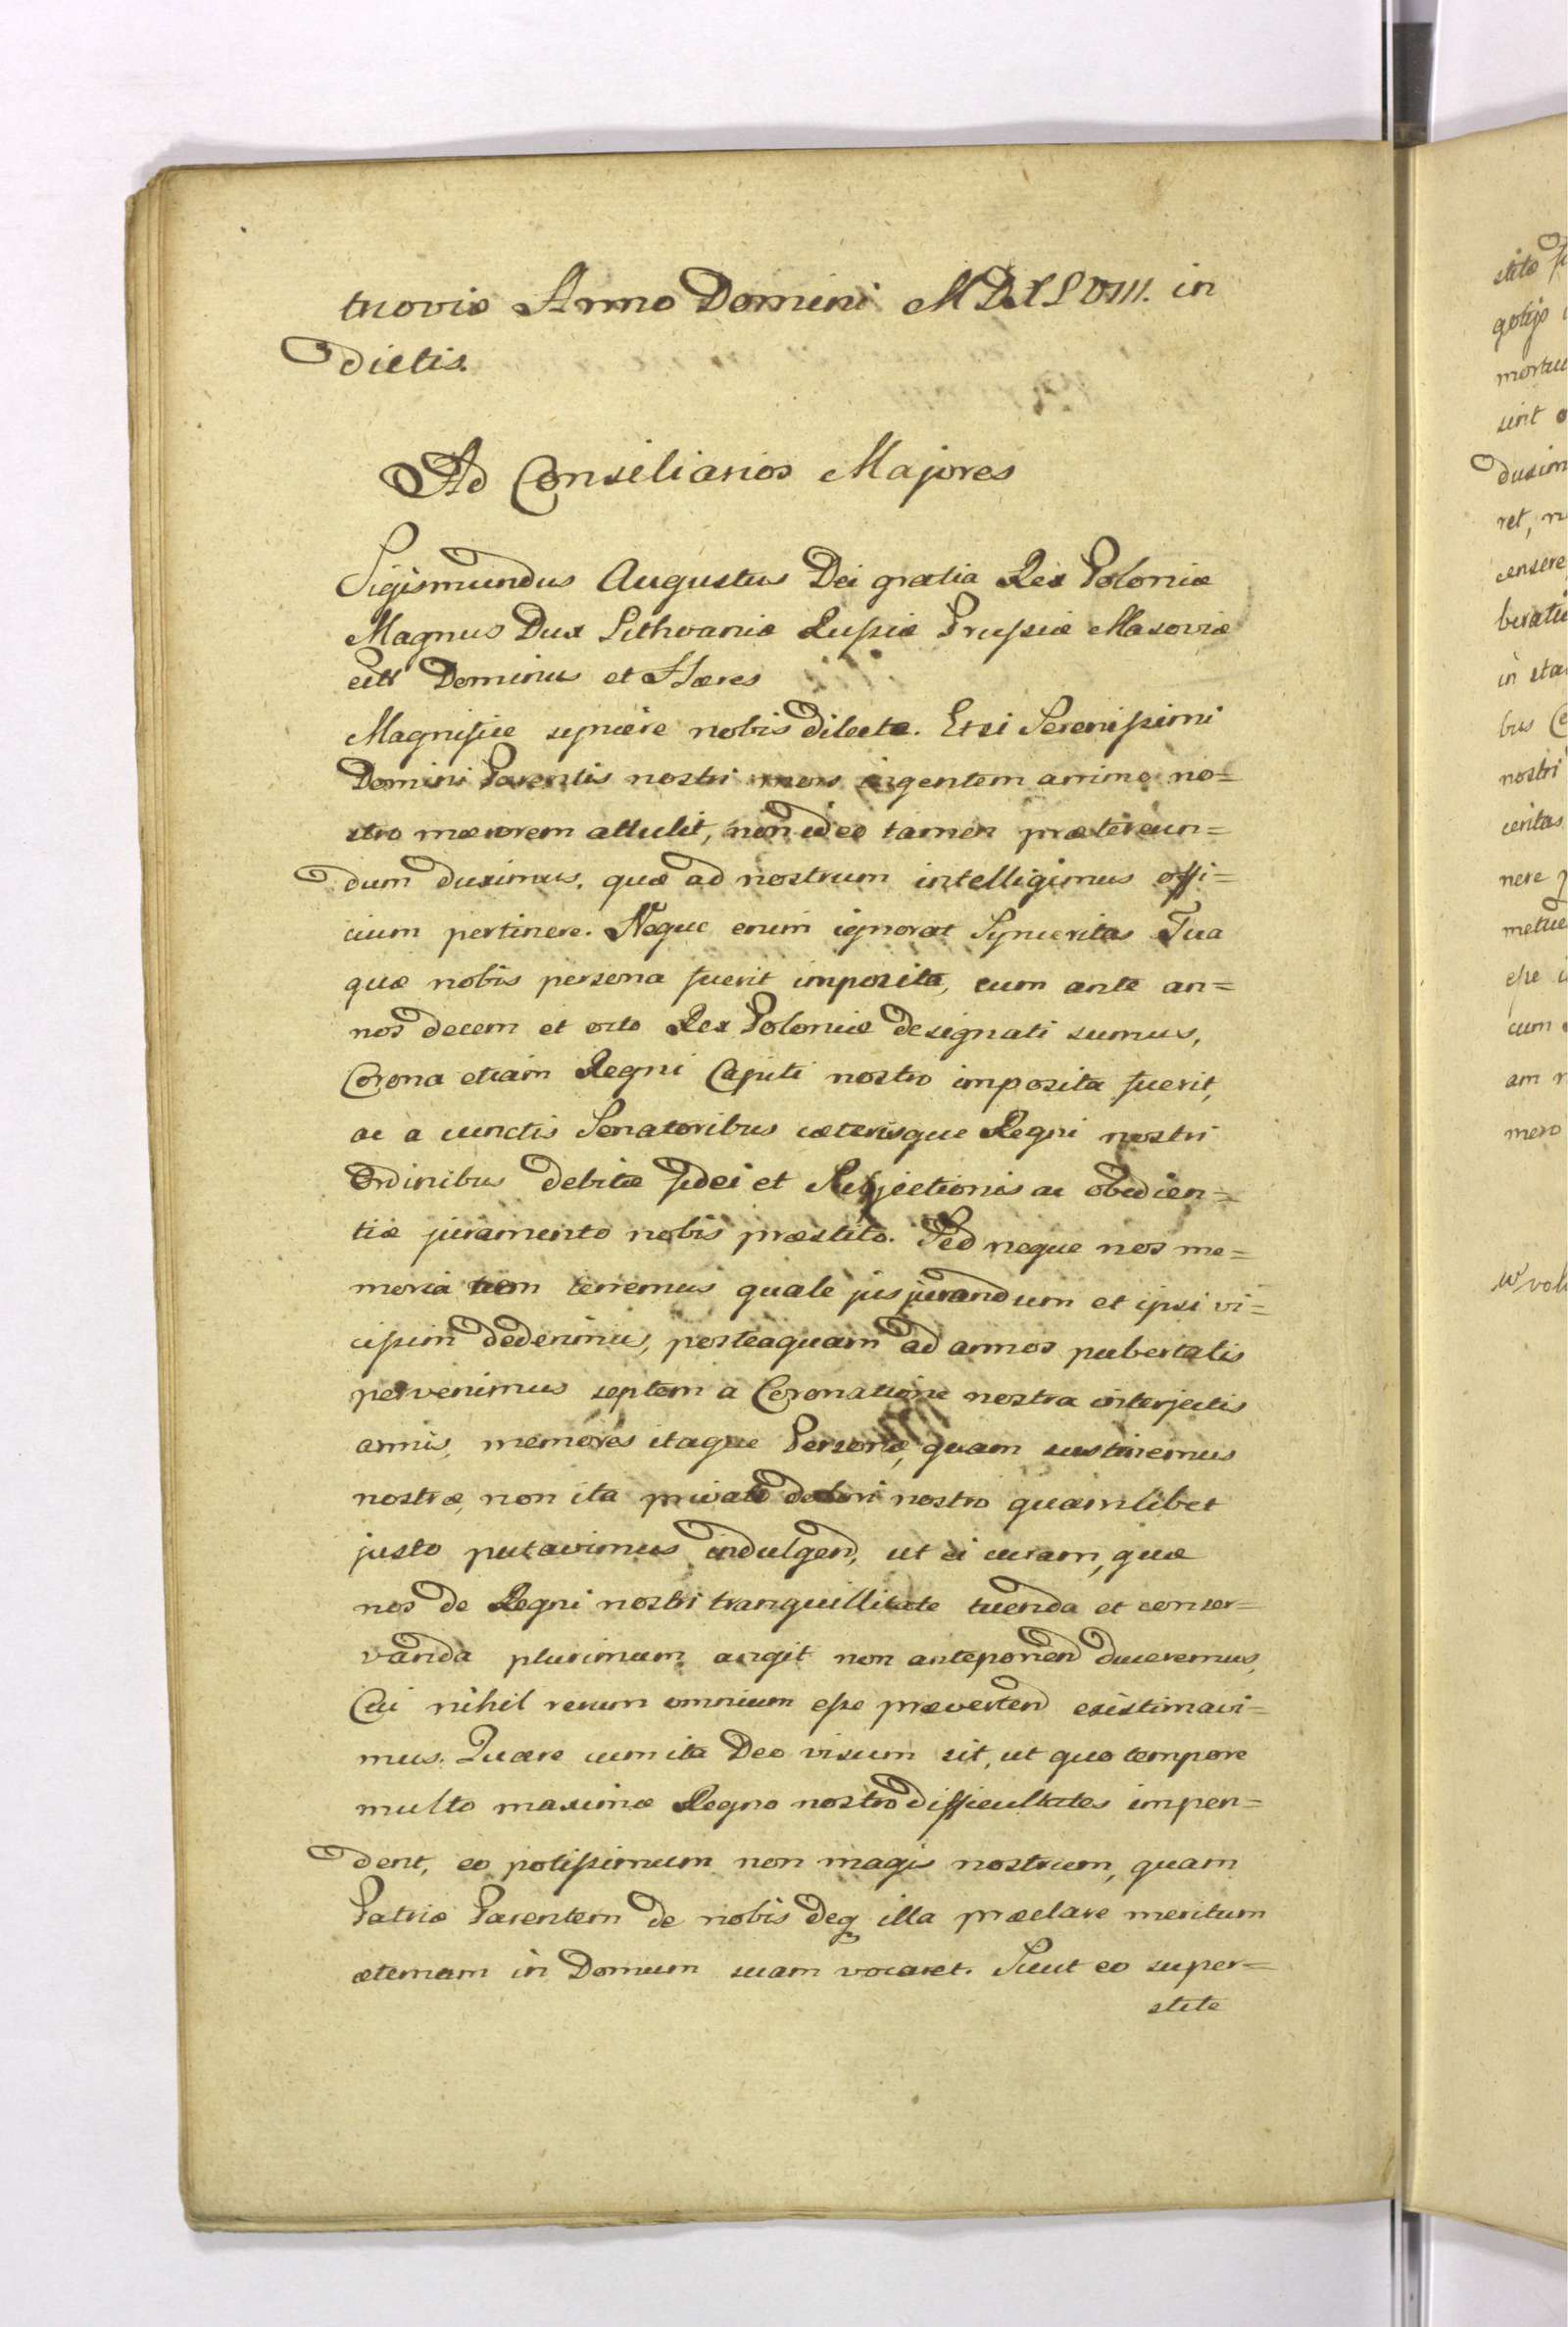 tricoviæ Anno Domini MDXLVIII. in
dictis.
Ad Consiliarios Majores
Sigismundus Augustus Dei gratia Rex Poloniæ
Magnus Dux Lithvaniæ Russiæ Prussiæ Masoviæ
etc Dominus et Hæres
Magnifice syncere nobis dilecte. Etsi Serenissimi
Domini Parentis nostri mors ingentem animo no=
stro mærorem attulit, non ideo tamen prætereun=
dum duximus, quæ ad nostrum intelligimus offi=
cium pertinere. Neque enim ignorat Synceritas Tua
quæ nobis persona fuerit imposita, cum ante an=
nos decem et octo Rex Poloniæ designati sumus,
Corona etiam Regni Capiti nostro imposita fuerit,
ac a cunctis Senatoribus cæterisque Regni nostri
Ordinibus debitæ fidei et Subjectionis ac obedien=
tiæ juramento nobis præstito. Sed neque nos me=
moria non tenemus quale jusjurandum et ipsi vi=
cissim dederimus, posteaquam ad annos pubertatis
pervenimus septem a Coronatione nostra interjectis
annis, memores itaque Personæ, quam sustinemus
nostræ, non ita privato dolori nostro quamlibet
justo putavimus indulgend, ut ei curam, quæ
nos de Regni nostri tranquillitate tuenda et conser=
vanda plurimum angit non anteponend duceremus,
Cui nihil rerum omnium esse prævertend existimavi=
mus. Quare cum ita Deo visum sit, ut quo tempore
multo maximæ Regno nostro difficultates impen=
dent, eo potissimum non magis nostrum, quam
Patriæ Parentem de nobis deq illa præclare meritum
æternam in Domum suam vocaret. Sicut eo super=
stite
stite
gotijs
mortu
sint
duxim
ret, n
censere
berati
in sta
bus
nostri
ceritas
nere
metue
esse
cum
am
mero